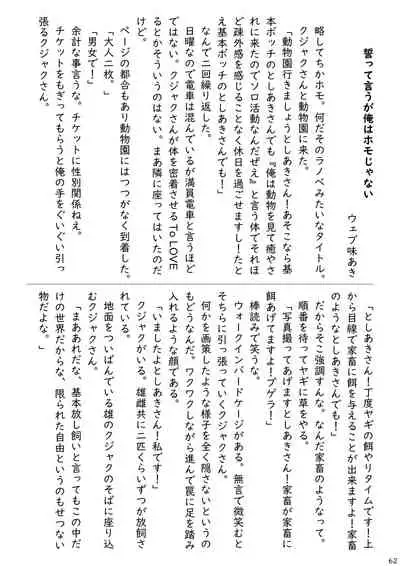 誓って言うが俺はホモじゃない
ウェブ味あき
略してちかホモ。何だそのラノベみたいなタイトル。
クジャクさんと動物園に来た。
「動物園行きましょうとしあきさん!あそこなら基
本ボッチのとしあきさんでも『俺は動物を見て癒やさ
れに来たのでソロ活動なんだぜえ』と言う体でそれほ
ど疎外感を感じることなく休日を過ごせますし!たと
え基本ボッチのとしあきさんでも!」
なんで二回繰り返した。
日曜なので電車は混んでいるが満員電車と言うほど
ではない。クジャクさんが体を密着させるToLOVE
るとかそういうのはない。まあ隣に座ってはいたのだ
けど。
ページの都合もあり動物園にはつつがなく到着した。
「大人二枚。」
「男女で!」
余計な事言うな。チケットに性別関係ねえ。
チケットをもぎってもらうと俺の手をぐいぐい引っ
張るクジャクさん。
「としあきさん!丁度ヤギの餌やりタイムです!上
から目線で家畜に餌を与えることが出来ますよ!家畜
のようなとしあきさんでも!」
だからそこ強調すんな。なんだ家畜のようなって。
順番を待ってヤギに草をやる。
「写真撮ってあげますとしあきさん!家畜が家畜に
餌あげてますよ!プゲラ!」
棒読みで笑うな。
ウォークインバードケージがある。無言で微笑むと
そちらに引っ張っていくクジャクさん。
何かを画策したような様子を全く隠さないというの
もどうなんだ。ワクワクしながら進んで罠に足を踏み
入れるような顔である。
「いましたよとしあきさん!私です!」
クジャクがいる。雄雌共に二匹くらいずつが放飼さ
れている。
地面をついばんでいる雄のクジャクのそばに座り込
むクジャクさん。
「まああれだな、基本放し飼いと言ってもこの中だ
けの世界だからな、限られた自由というのもせつない
物だよな。」
62